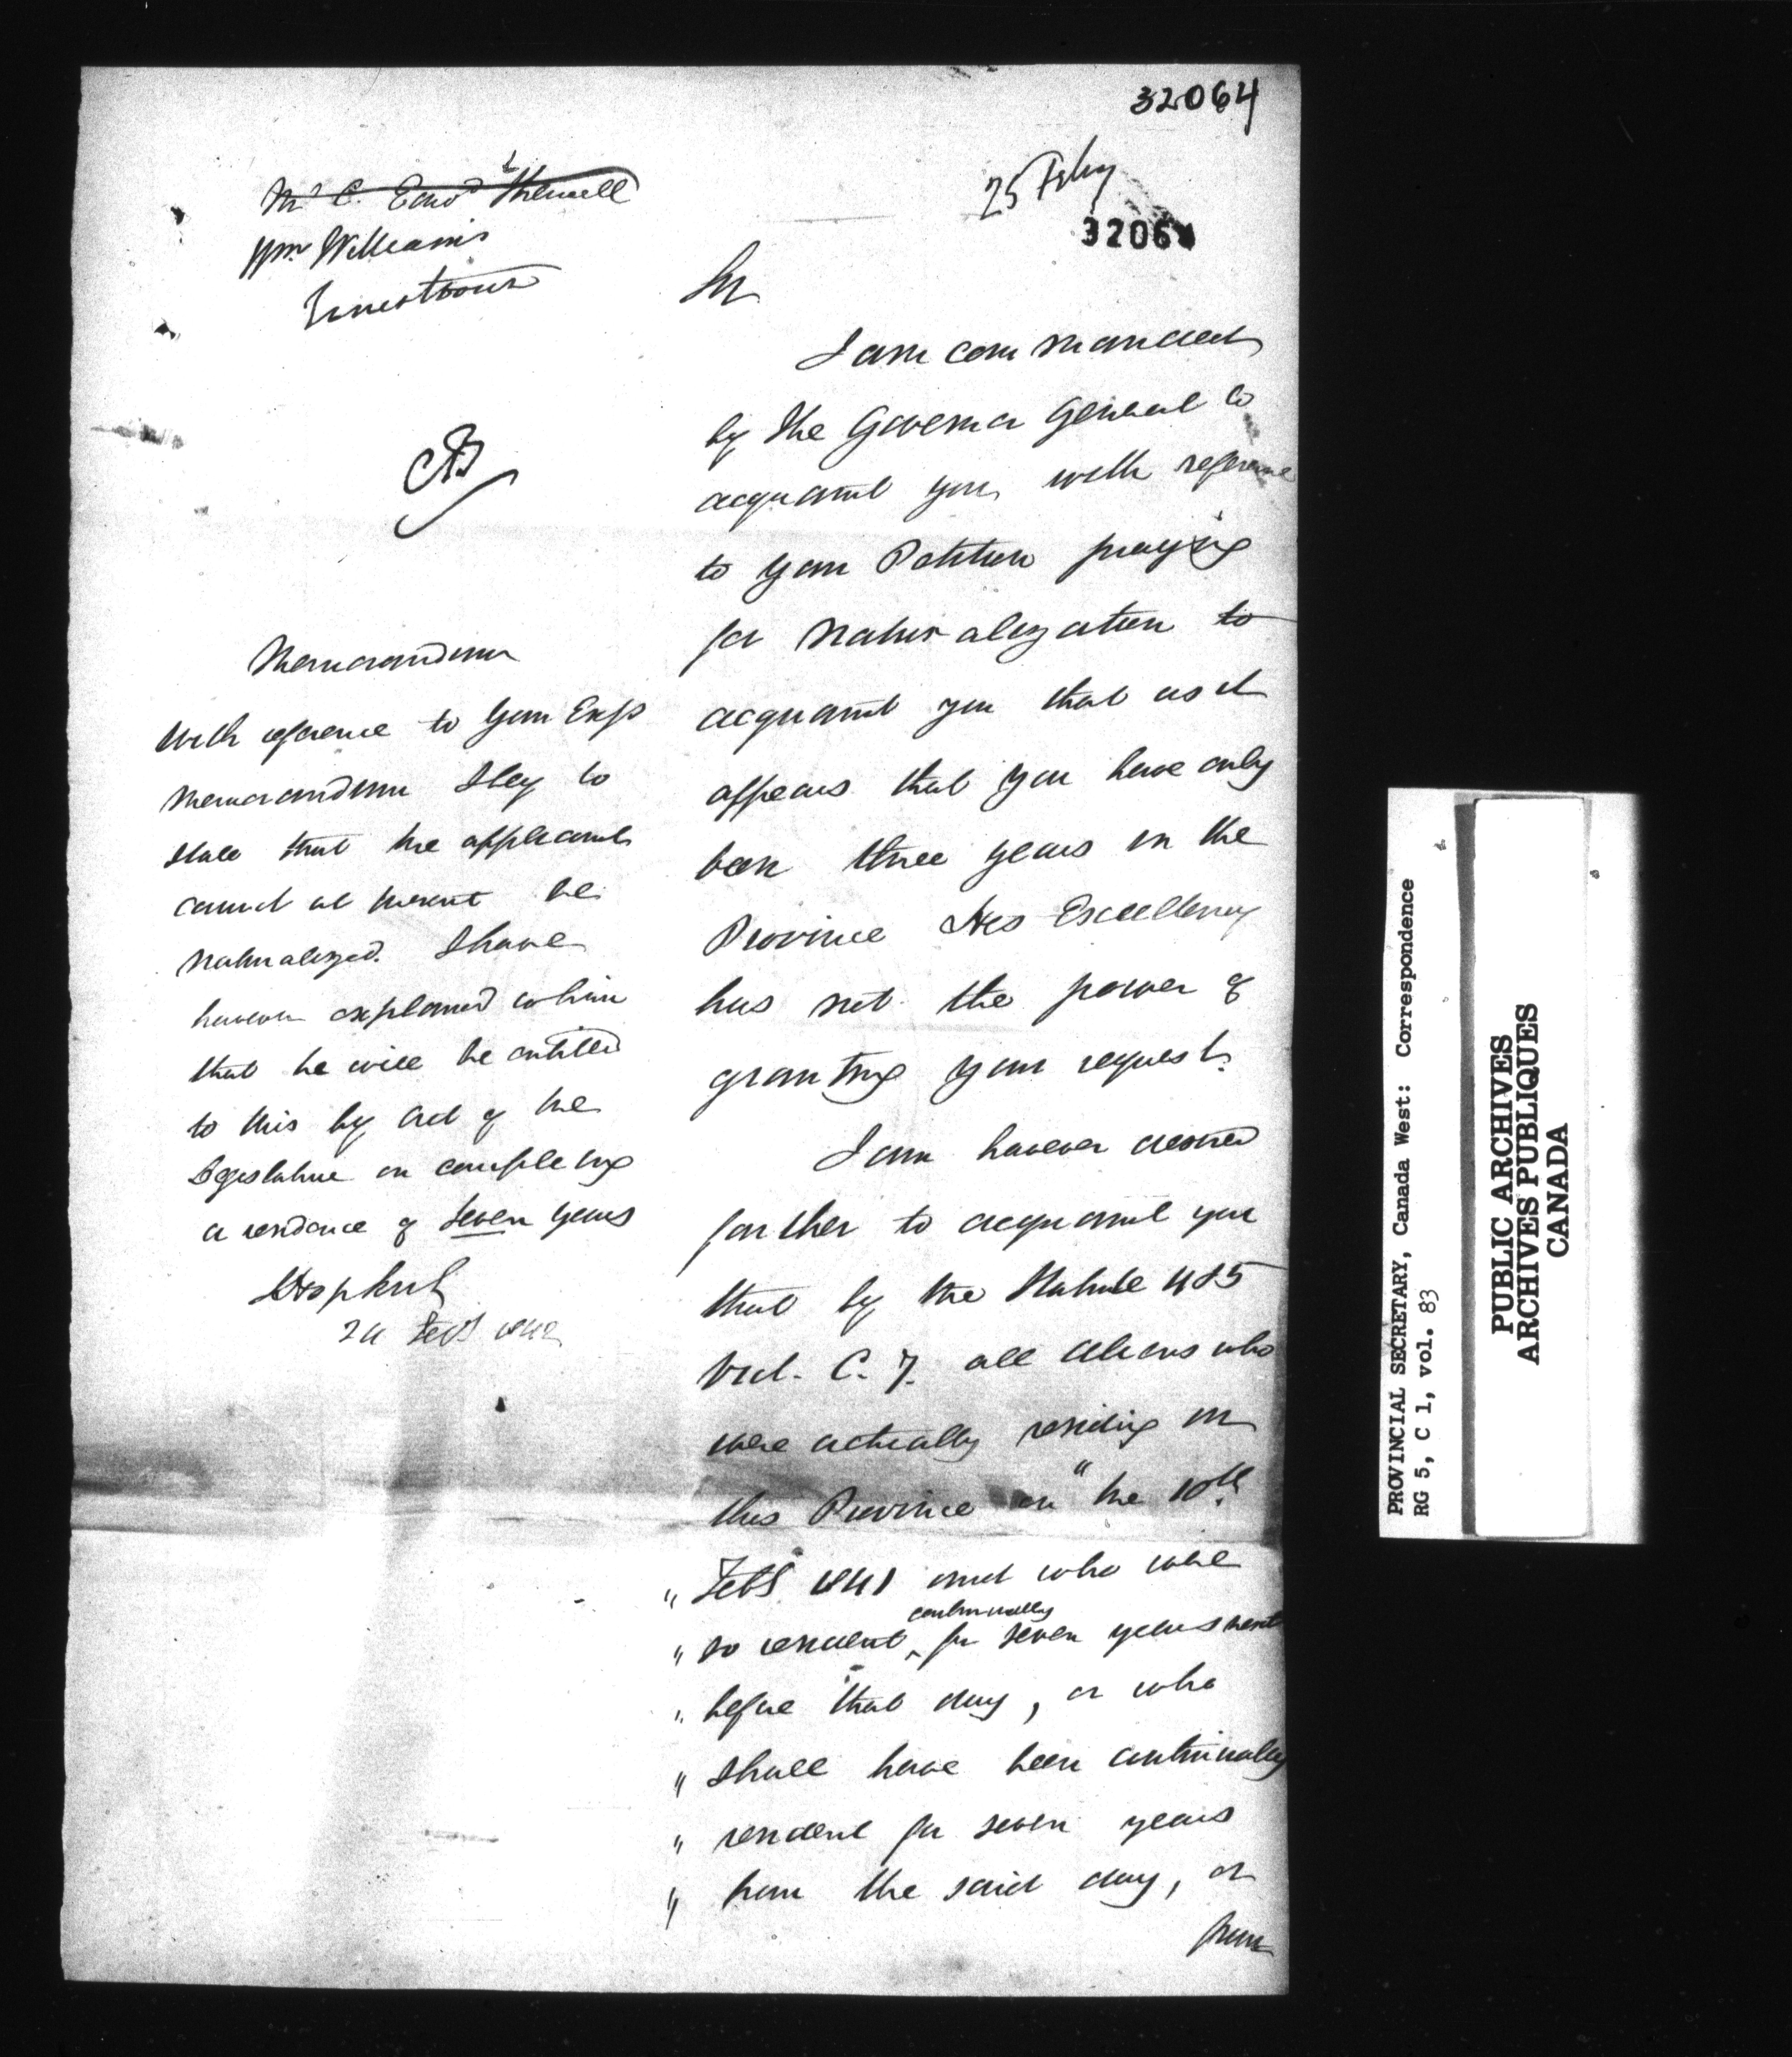 32064
25 Feby
32064
Mr C. Edwd
Wm Williams
Ernestown
Memorandum
With reference to your Exys
memorandum I beg to
state that the applicant
cannot at present be
naturalized. I have
however explained to him
that he will be entitled
to this by act of the
Legislature on completing
a residence of seven years
24 Feby 1842
Sir
I am commanded
by the Governor General to
acquaint you with reference
to your Petition praying
for naturalization to
acquaint you that as it
appears that you have only
been three years in the
Province His Excellency
has not the power of
granting your request.
I am however desired
further to acquaint you
that by the Statute 4 & 5
Vict. C. 7. all Aliens who
were actually residing in
this Province on " the 10th
" Feby 1841 and who were
continually
" so resident ‸ for seven years next
" before that day, or who
" shall have been continually
" resident for seven years
" from the said day, or
from
PROVINCIAL SECRETARY, Canada West: Correspondence
RG 5, C 1, vol. 83
PUBLIC ARCHIVES
ARCHIVES PUBLIQUES
CANADA